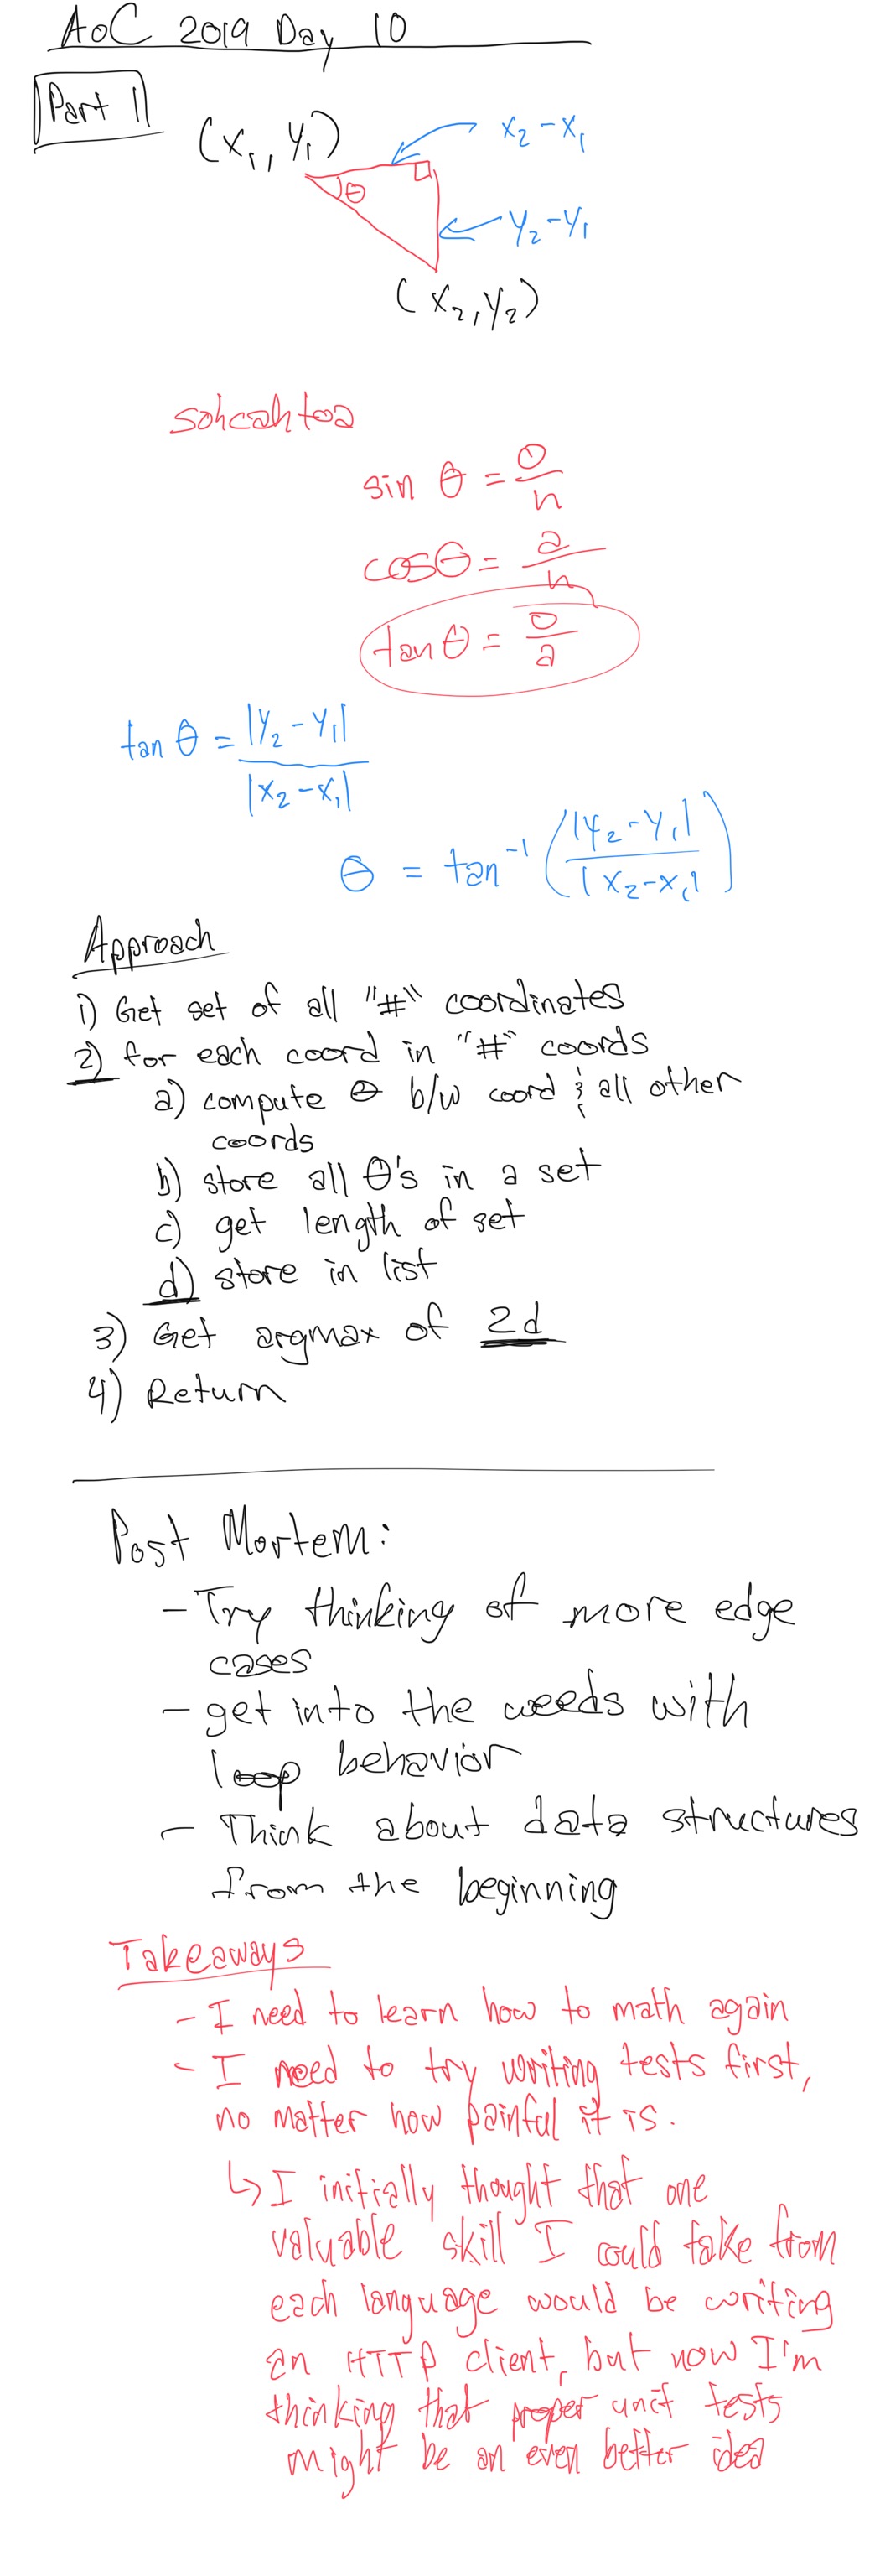 AoC 2019 Day 10
Part 1
(x₁, y₁)
x₂ - x₁
θ
y₂ - y₁
(x₂, y₂)
sohcahtoa
sin θ = o/h
cos θ = a/h
tan θ = o/a
tan θ = |y₂ - y₁| / |x₂ - x₁|
θ = tan⁻¹ (|y₂ - y₁| / |x₂ - x₁|)
Approach
1) Get set of all "#" coordinates
2) for each coord in "#" coords
a) compute θ b/w coord & all other
coords
b) store all θ's in a set
c) get length of set
d) store in list
3) Get argmax of 2d
4) Return
Post Mortem:
- Try thinking of more edge
cases
- get into the weeds with
loop behavior
- Think about data structures
from the beginning
Takeaways
- I need to learn how to math again
- I need to try writing tests first,
no matter how painful it is.
↳ I initially thought that one
valuable skill I could take from
each language would be writing
an HTTP client, but now I'm
thinking that proper unit tests
might be an even better idea